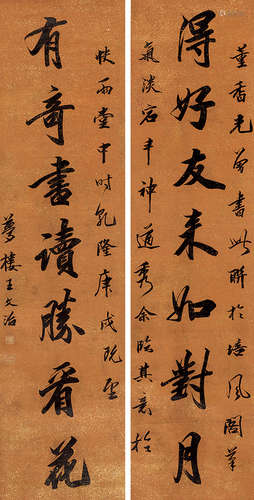 董香光曾書此聯於培風閣筆
得好友来如對月
氣淡宕丰神遒秀余臨其意於
快雨堂中时乾隆庚戌既望
有奇書讀勝看花
夢樓王文治